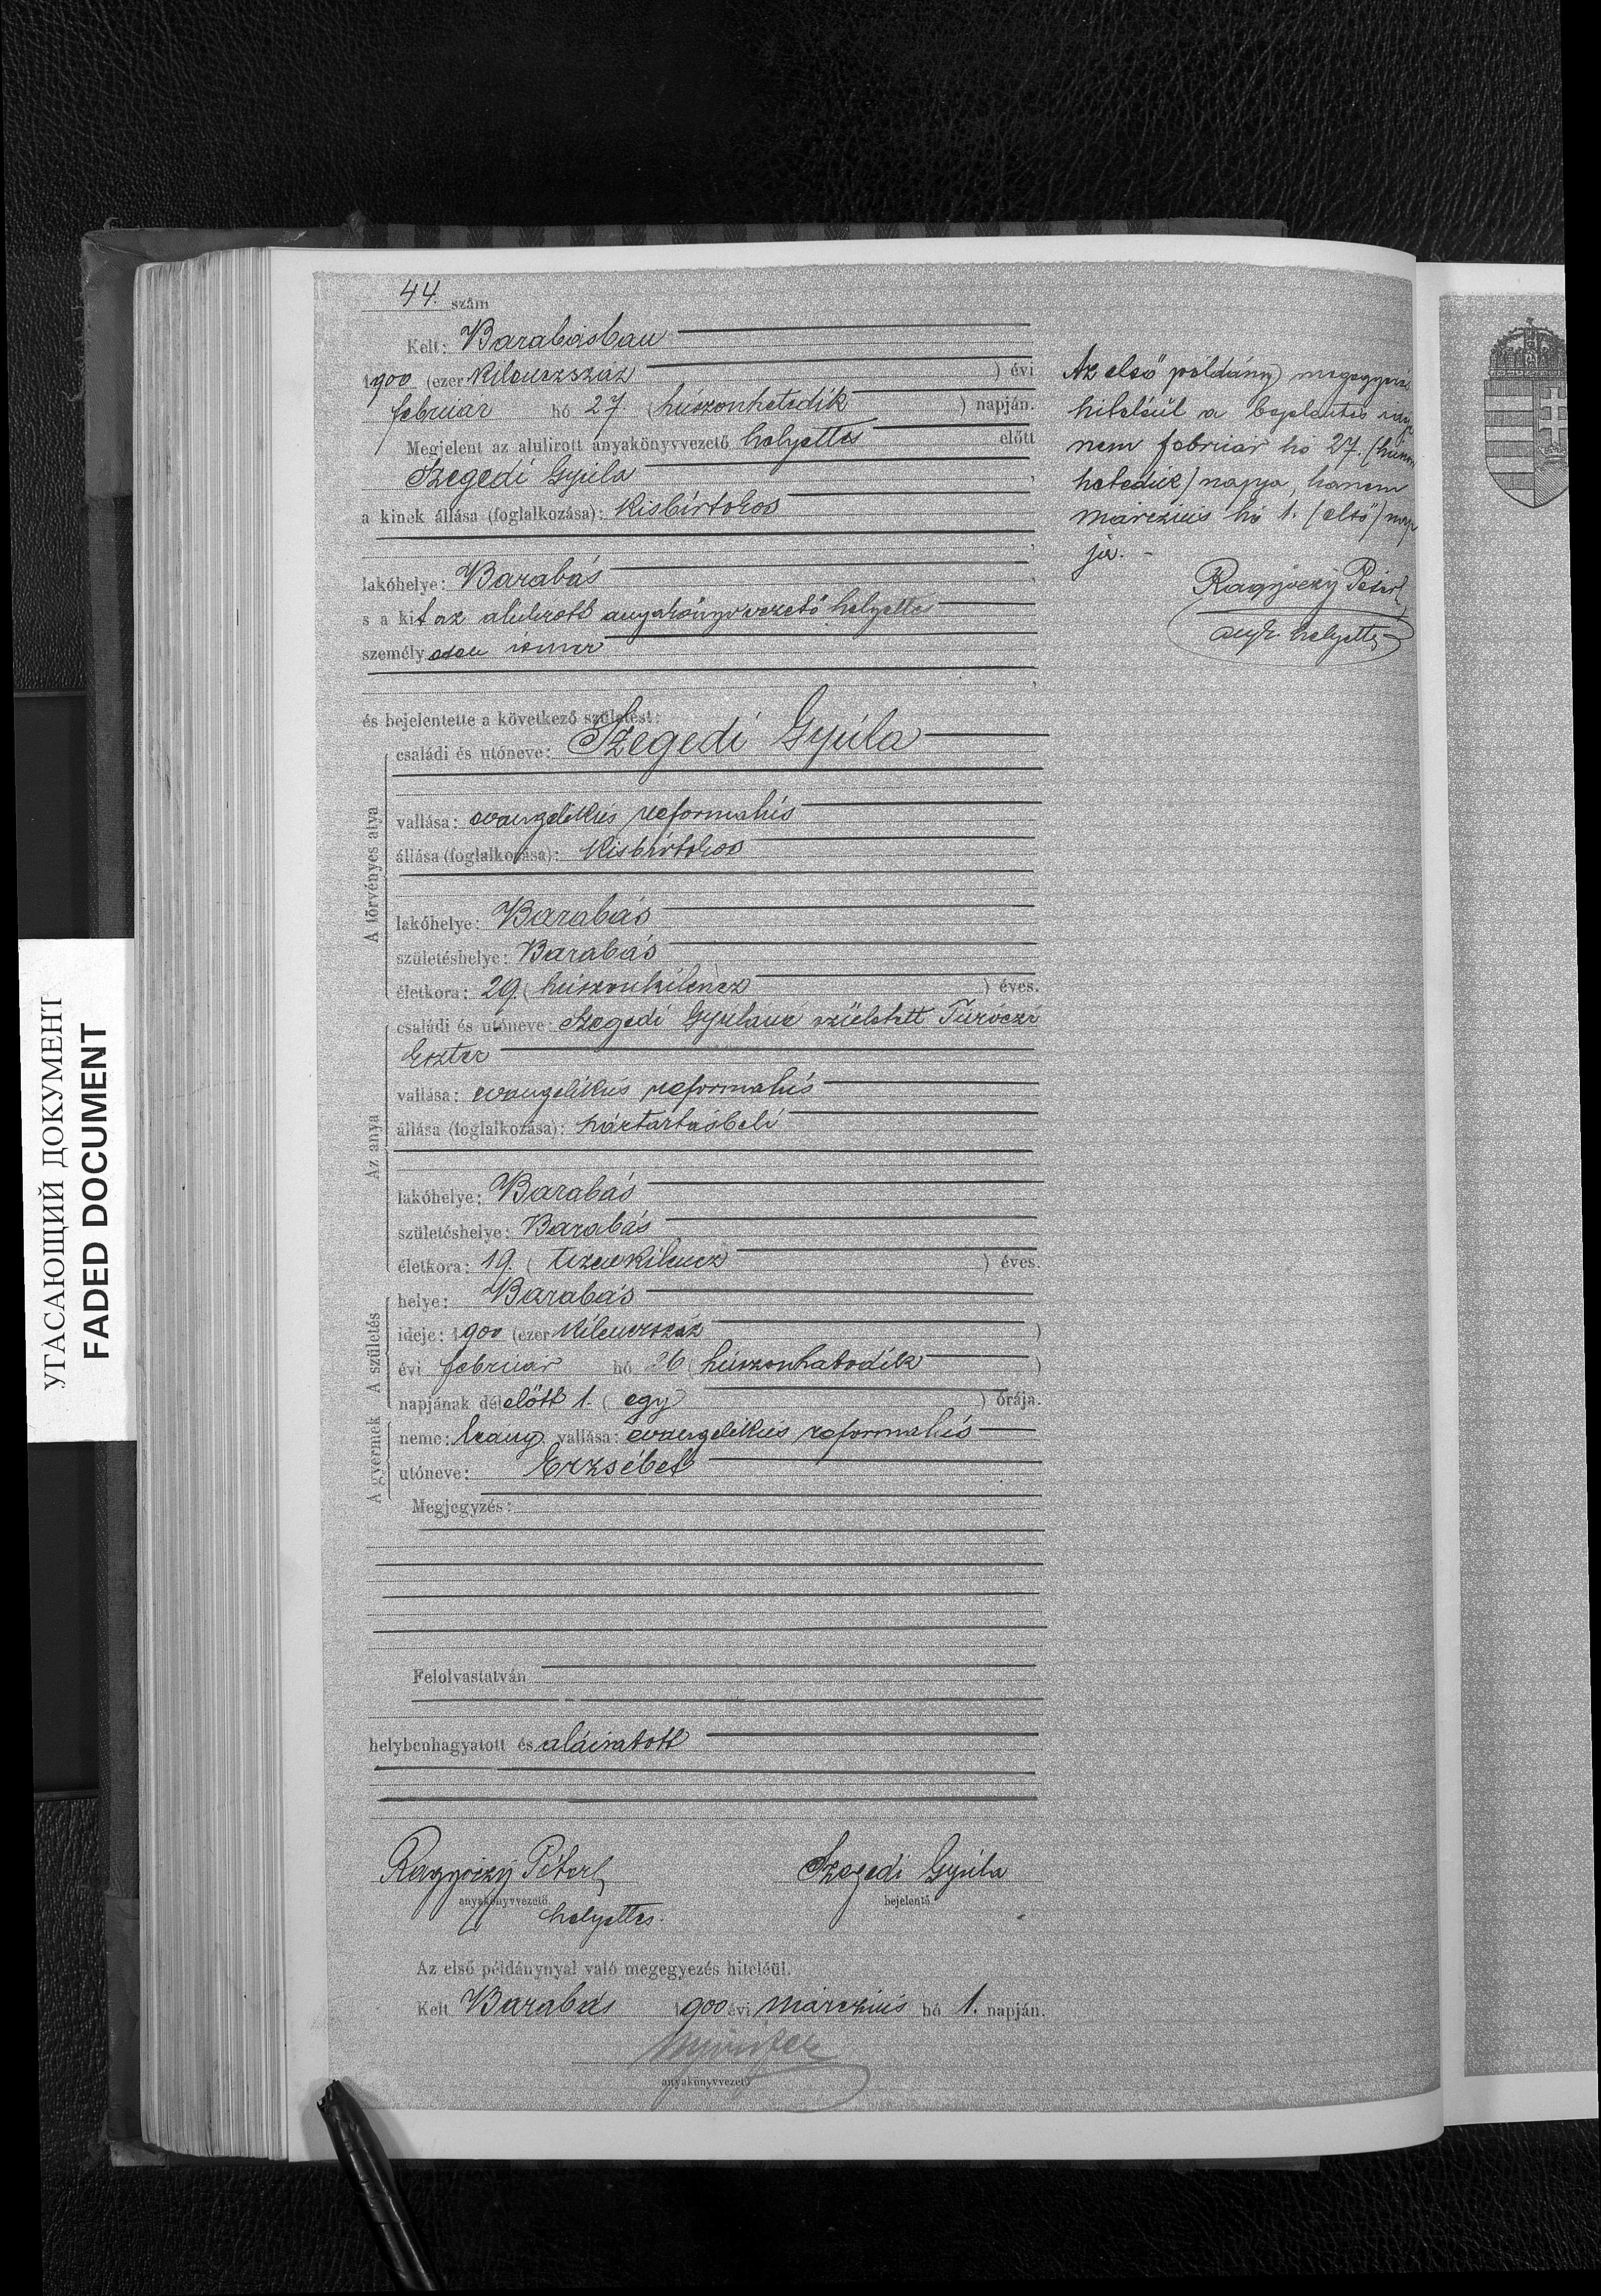 44. szám
Kelt: Barabásban
1900 (ezer kilenczszáz ) évi
február hó 27. (huszonhetedik ) napján.
Megjelent az alulirott anyakönyvvezető helyettes előtt
Szegedi Gyula,
a kinek állása (foglalkozása): kisbirtokos
lakóhelye: Barabás,
s a kit az alulirott anyakönyvvezető helyettes
személyesen ismer
,
és bejelentette a következő születést:
A törvényes atya
családi és utóneve: Szegedi Gyula
vallása: evangélikus reformatus
állása (foglalkozása): kisbirtokos
lakóhelye: Barabás
születéshelye: Barabás
életkora: 29. (huszonkilencz ) éves.
Az anya
családi és utóneve: Szegedi Gyuláné született Turóczi
Eszter
vallása: evangélikus reformatus
állása (foglalkozása): háztartásbeli
lakóhelye: Barabás
születéshelye: Barabás
életkora: 19. (tizenkilencz ) éves.
A születés
helye: Barabás
ideje: 1900 (ezer kilenczszáz )
évi február hó 26 (huszonhatodik )
napjának délelőtt 1. (egy ) órája.
A gyermek
neme: leány vallása: evangélikus reformatus
utóneve: Erzsébet
Megjegyzés:
Felolvastatván
helybenhagyatott és aláiratott
Péter helyettes.
anyakönyvvezető
Szegedi Gyula
bejelentő
Az első példánynyal való megegyezés hiteléül.
Kelt Barabás 1900 évi márczius hó 1. napján.
anyakönyvvezető
Az első példány
hiteléül a bejelentés
nem február hó 27.
hetedik) napja, hanem
márczius hó 1. (első) nap
ja. -
Péter
anyk. helyettes
УГАСАЮЩИЙ ДОКУМЕНТ
FADED DOCUMENT